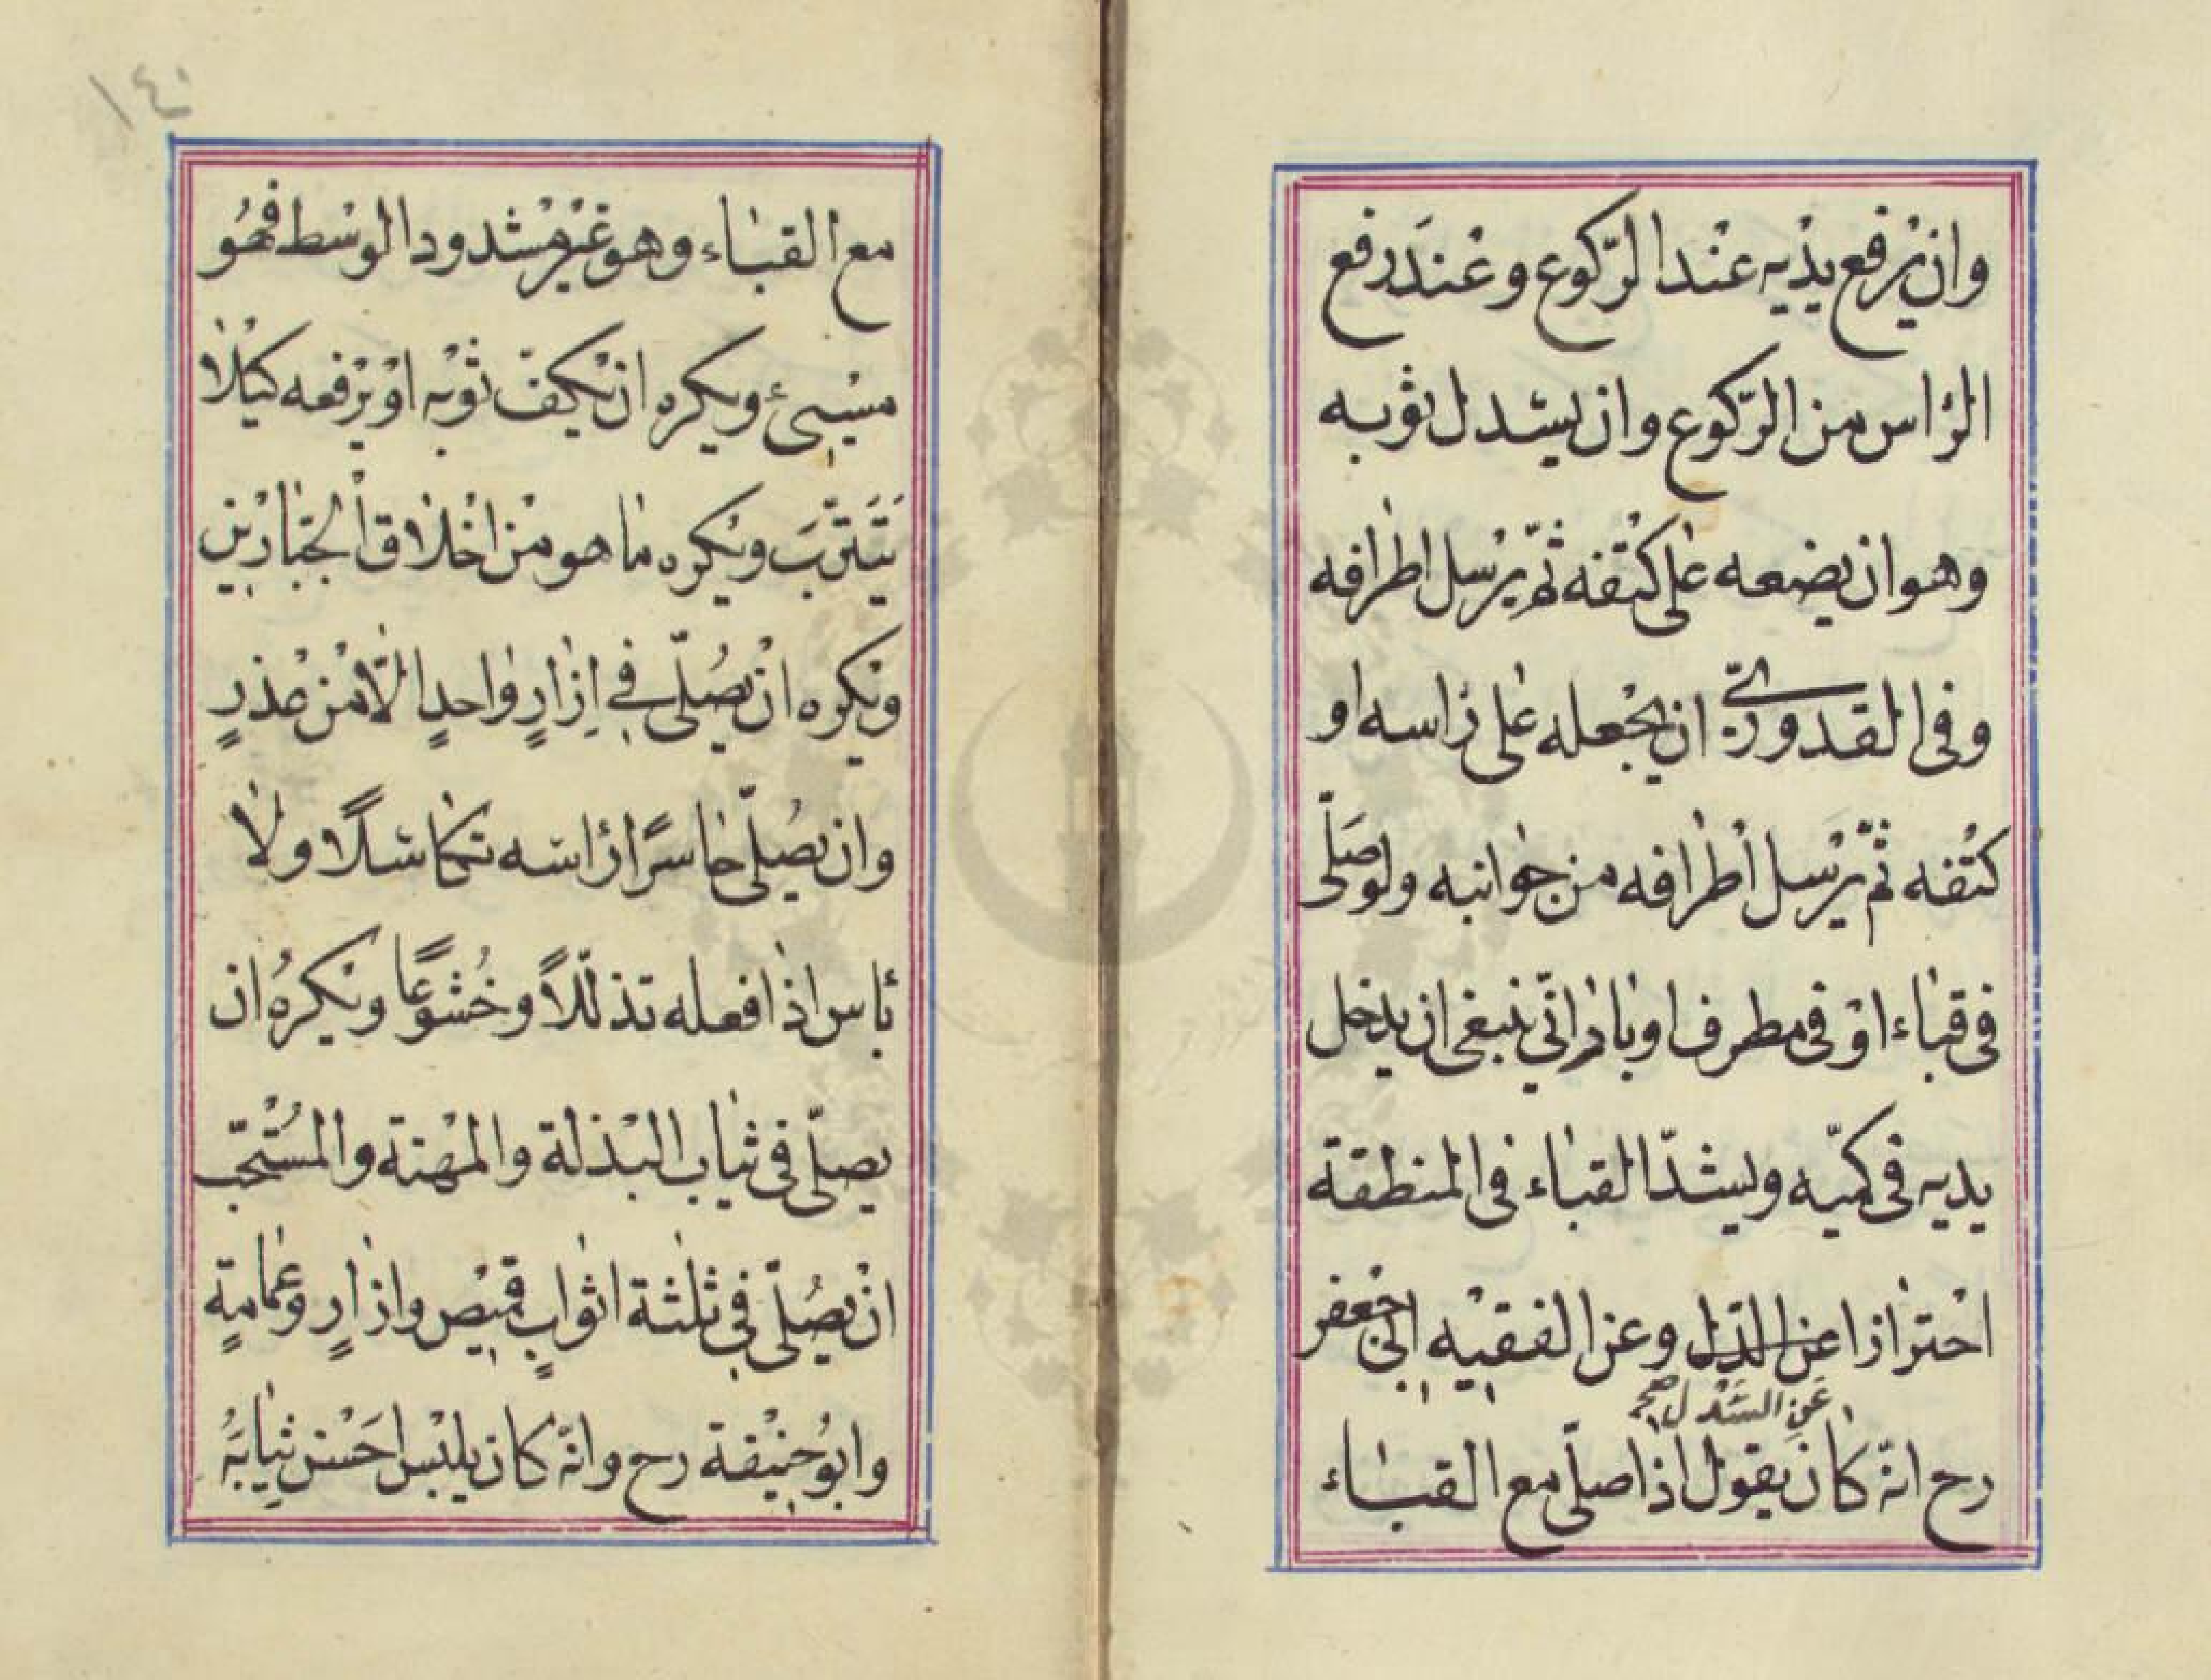 وان يرفع يديه عند الرّكوع وعند رفع
الراس من الرّكوع وان يسدل ثوبه
وهو ان يضعه على كتفه ثمّ يرسل اطرافه
وفى القدورىّ ان يجعله على راسه او
كتفه ثمّ يرسل اطرافه من جوانبه ولو صَلّى
فى قباء او فى مطرف او بارانّي ينبغى ان يدخل
يديه فى كمّيه ويشدّ القباء فى المنطقة
احترازا عن الذيل وعن الفقيه ابى جعفر
عَنِ السَّدْل صح
رح انّه كان يقول اذا صلّى مع القباء
١٤٠
مع القباء وهو غير مشدود الوسط فهُو
مسيىء ويكره ان يكفّ ثوبه او يرفعه كيلا
يَتَترّبَ ويكره ما هو من اخلاق الجبّارين
ويكره ان يصُلّى فے اِزارٍ واحدٍ الّا من عذرٍ
وان يصُلّى حاسرًا راسه تكاسلًا ولا
باس اذا فعله تذلّلًا وخُشوعًا ويكرهُ ان
يصلّى فى ثياب البذلة والمهنة والمسُتحّب
ان يصُلّى فى ثلثة اثوابٍ قميص وازارٍ وعمامةٍ
وابوُ حنيفة رح وانّه كان يلبس احَسن ثيابهُ